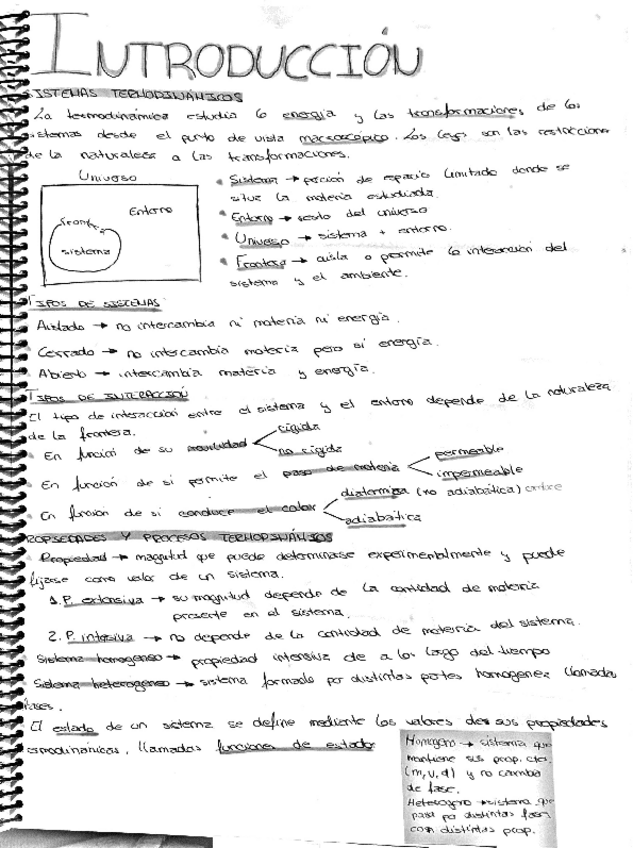 INTRODUCCIÓN
SISTEMAS TERMODINÁMICOS
La termodinámica estudia la energía y las transformaciones de los
sistemas desde el punto de vista macroscópico. Las leyes son las restricciones
de la naturaleza a las transformaciones.
Universo
Entorno
frontera
sistema
• Sistema → porción de espacio limitado donde se
situa la materia estudiada.
• Entorno → resto del universo
• Universo → sistema + entorno.
• Frontera → aisla o permite la interacción del
sistema y el ambiente.
TIPOS DE SISTEMAS
Aislado → no intercambia ni materia ni energía.
Cerrado → no intercambia materia pero sí energía.
Abierto → intercambia materia y energía.
TIPOS DE INTERACCIÓN
El tipo de interacción entre el sistema y el entorno depende de la naturaleza
de la frontera.
• En función de su movilidad
rígida
no rígida
• En función de si permite el paso de materia
permeable
impermeable
• En función de si conduce el calor
diatermica (no adiabática)
adiabática
PROPIEDADES Y PROCESOS TERMODINÁMICOS
• Propiedad → magnitud que puede determinarse experimentalmente y puede
fijarse como valor de un sistema.
1. P. extensiva → su magnitud depende de la cantidad de materia
presente en el sistema.
2. P. intesiva → no depende de la cantidad de materia del sistema.
• Sistema homogeneo → propiedad intensiva de a lo largo del tiempo
• Sistema heterogeneo → sistema formado por distintas partes homogeneas llamadas
fases.
El estado de un sistema se define mediante los valores de sus propiedades
termodinámicas, llamadas funciones de estado
Homogéneo → sistema que
mantiene sus prop. ctes.
(m, v, d) y no cambia
de fase.
Heterogéneo → sistema que
pasa por distintas fases
con distintas prop.